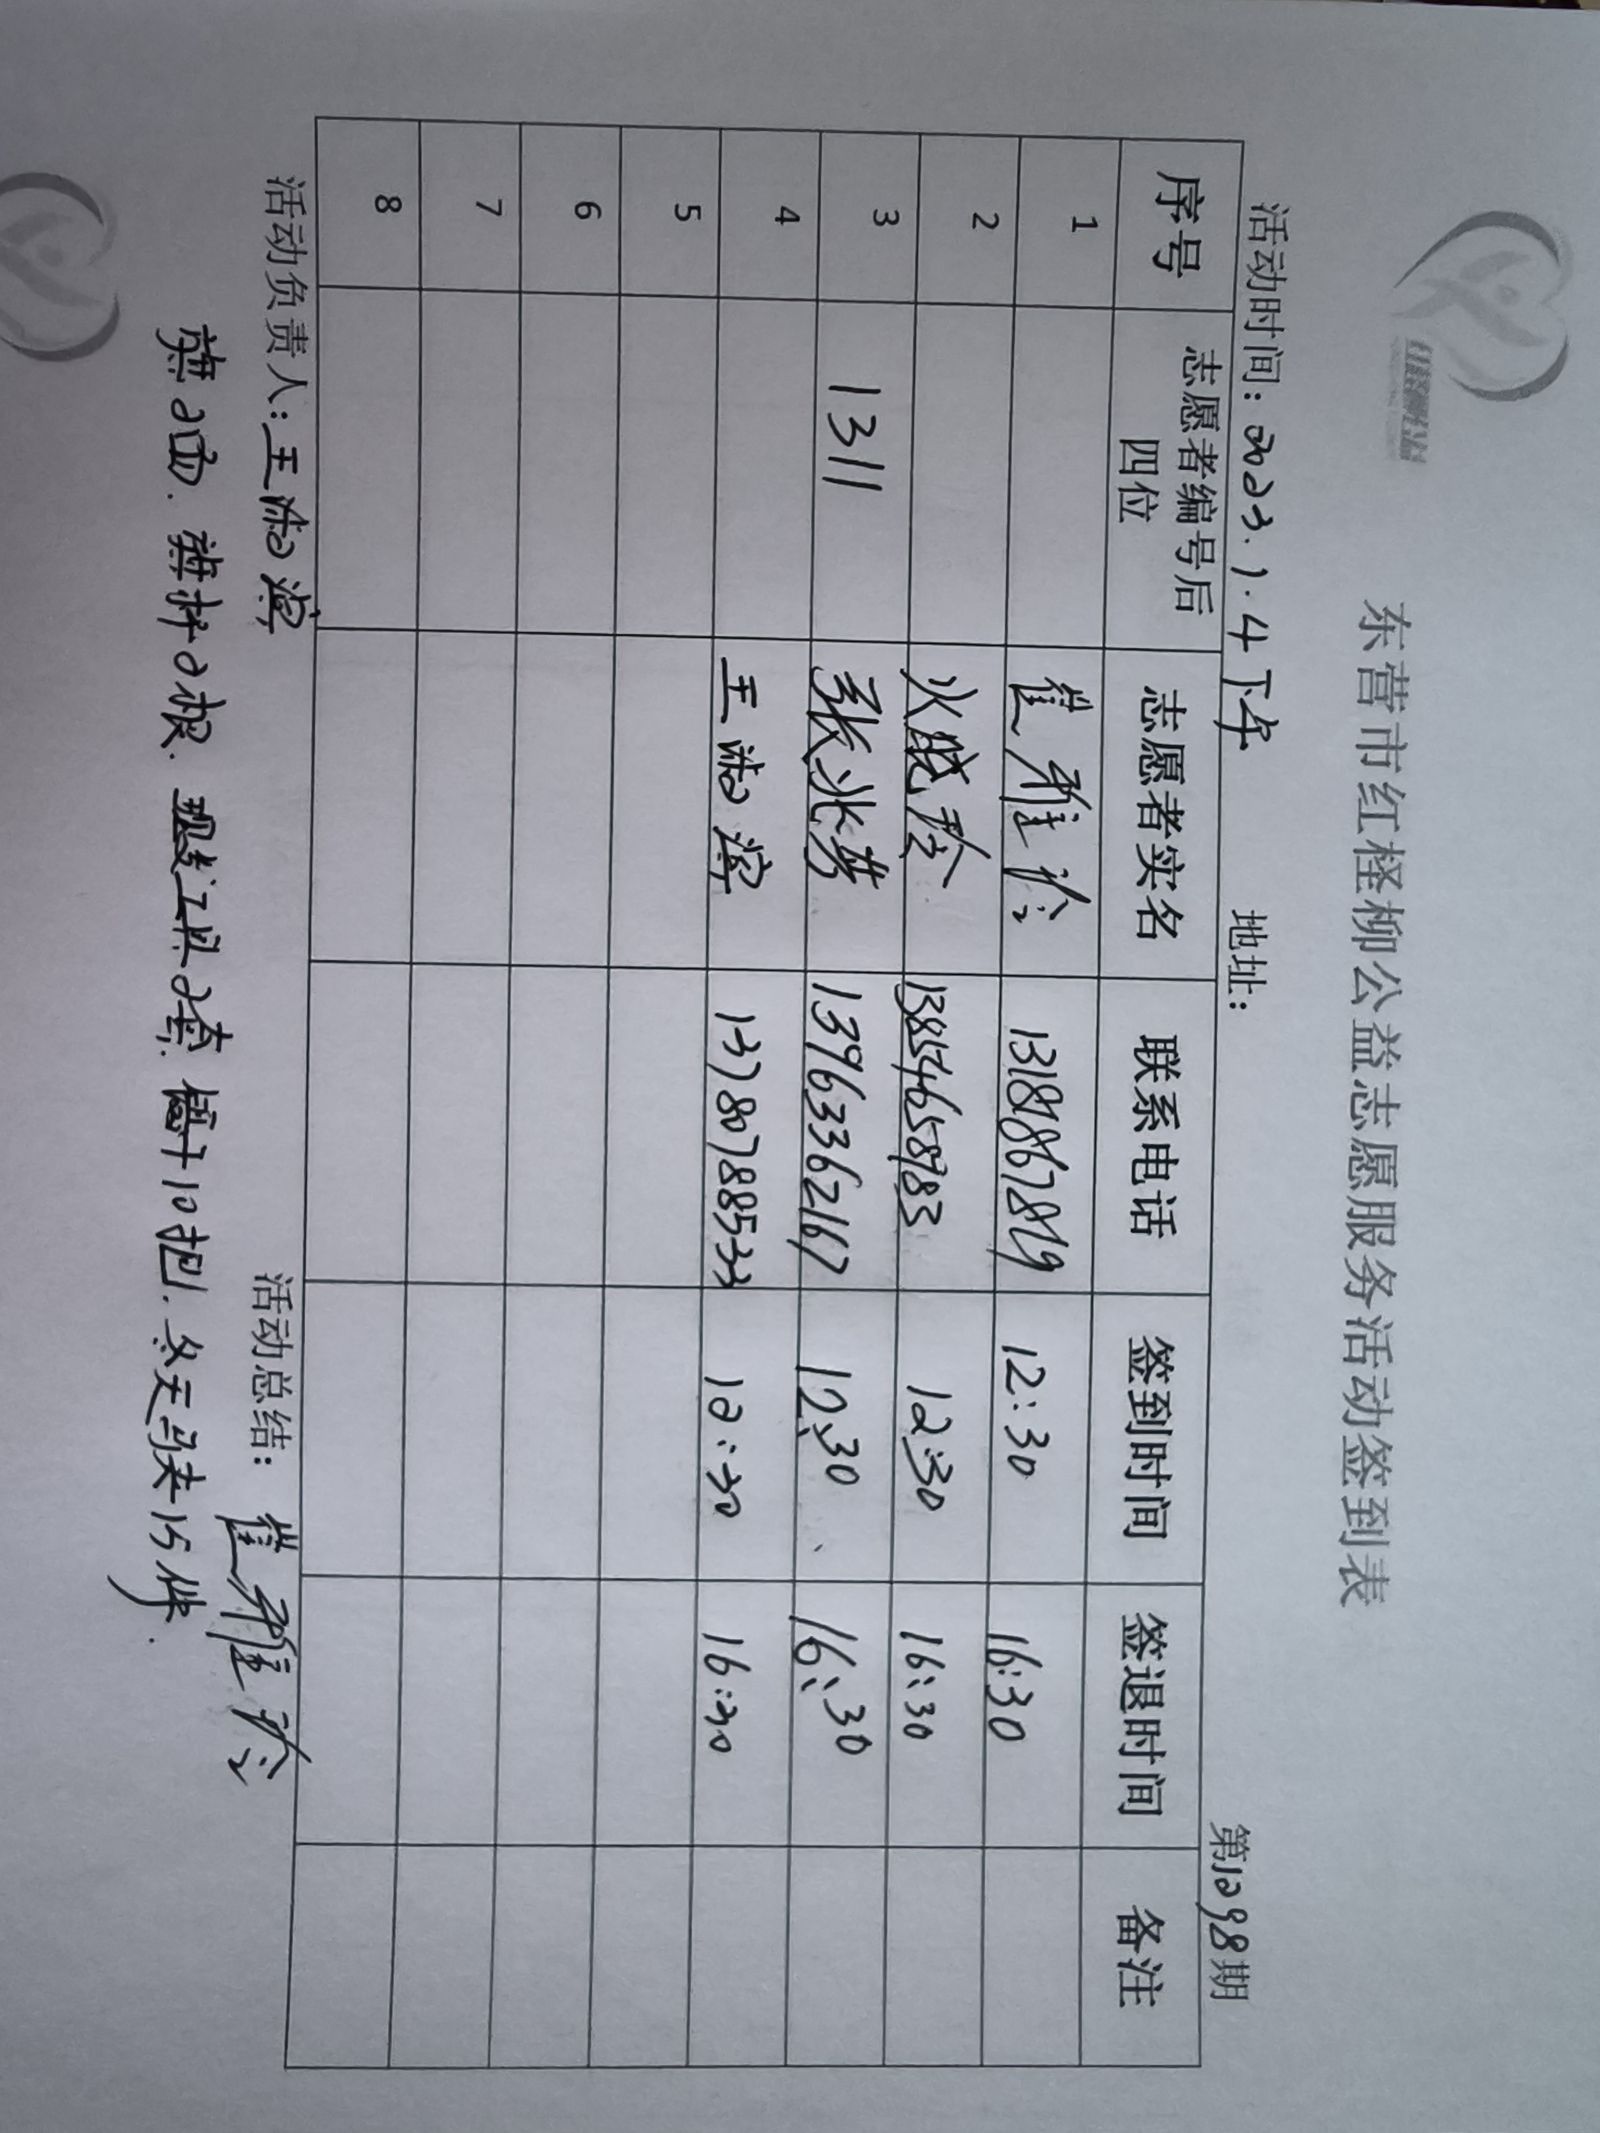 东营市红柽柳公益志愿服务活动签到表
活动时间：2023.1.4下午 地址： 第1298期
序号 志愿者编号后四位 志愿者实名 联系电话 签到时间 签退时间 备注
1 崔雅玲 13181867819 12:30 16:30
2 火晓玲 13854658983 12:30 16:30
3 1311 张兆芳 13963362167 12:30 16:30
4 王淑滨 13780788533 12:30 16:30
5
6
7
8
活动负责人：王淑滨 活动总结：崔雅玲
旗2面.旗杆2根. 工具2套. 10把.冬天马夹15件.